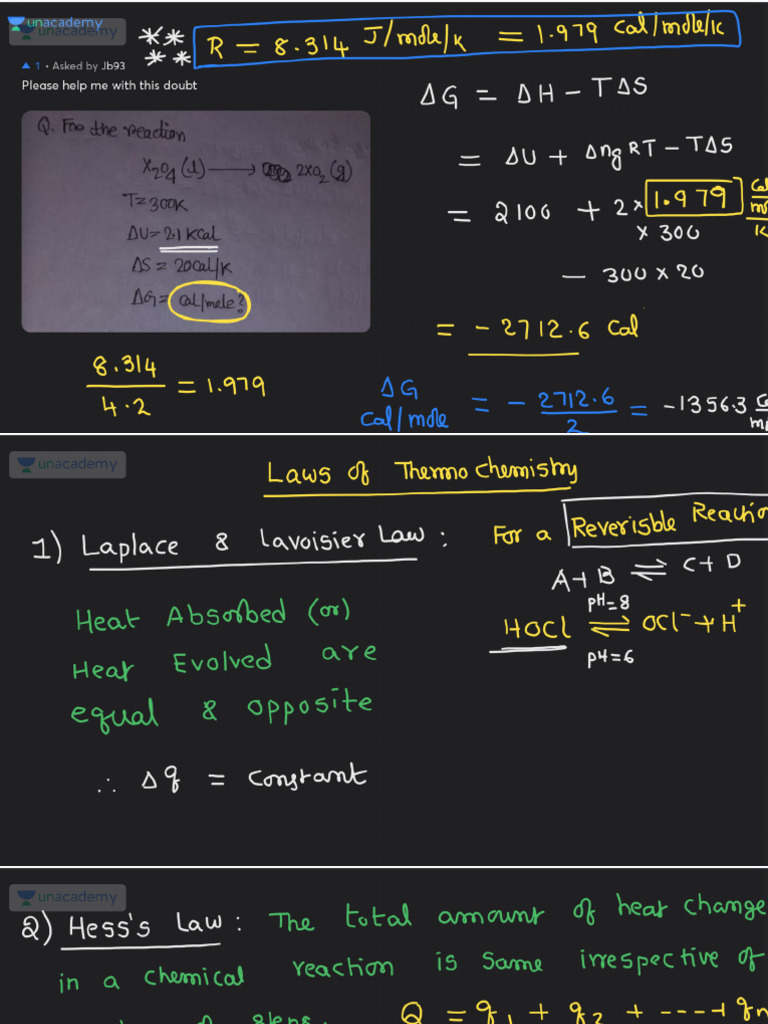 unacademy
unacademy
** R = 8.314 J/mole/k = 1.979 Cal/mole/k
**
▲ 1 • Asked by Jb93
Please help me with this doubt
Q. For the reaction
X2O4(l) ⟶ 2XO2(g)
T = 300K
ΔU = 2.1 KCal
ΔS = 20Cal/K
ΔG = Cal/mole?
8.314/4.2 = 1.979
ΔG = ΔH − TΔS
= ΔU + Δng RT − TΔS
= 2100 + 2× 1.979
× 300
− 300 × 20
= − 2712.6 Cal
ΔG Cal/mole = − 2712.6/2 = −1356.3
unacademy
Laws of Thermo Chemistry
1) Laplace & Lavoisier Law : For a Reverisble Reactio
A + B ⇌ C + D
Heat Absorbed (or)
Heat Evolved are
equal & opposite
pH=8
HOCl ⇌ OCl⁻ + H⁺
pH=6
∴ Δq = Constant
unacademy
2) Hess's Law : The total amount of heat change
in a chemical reaction is Same irrespective of
Q = q1 + q2 + ----+ qn